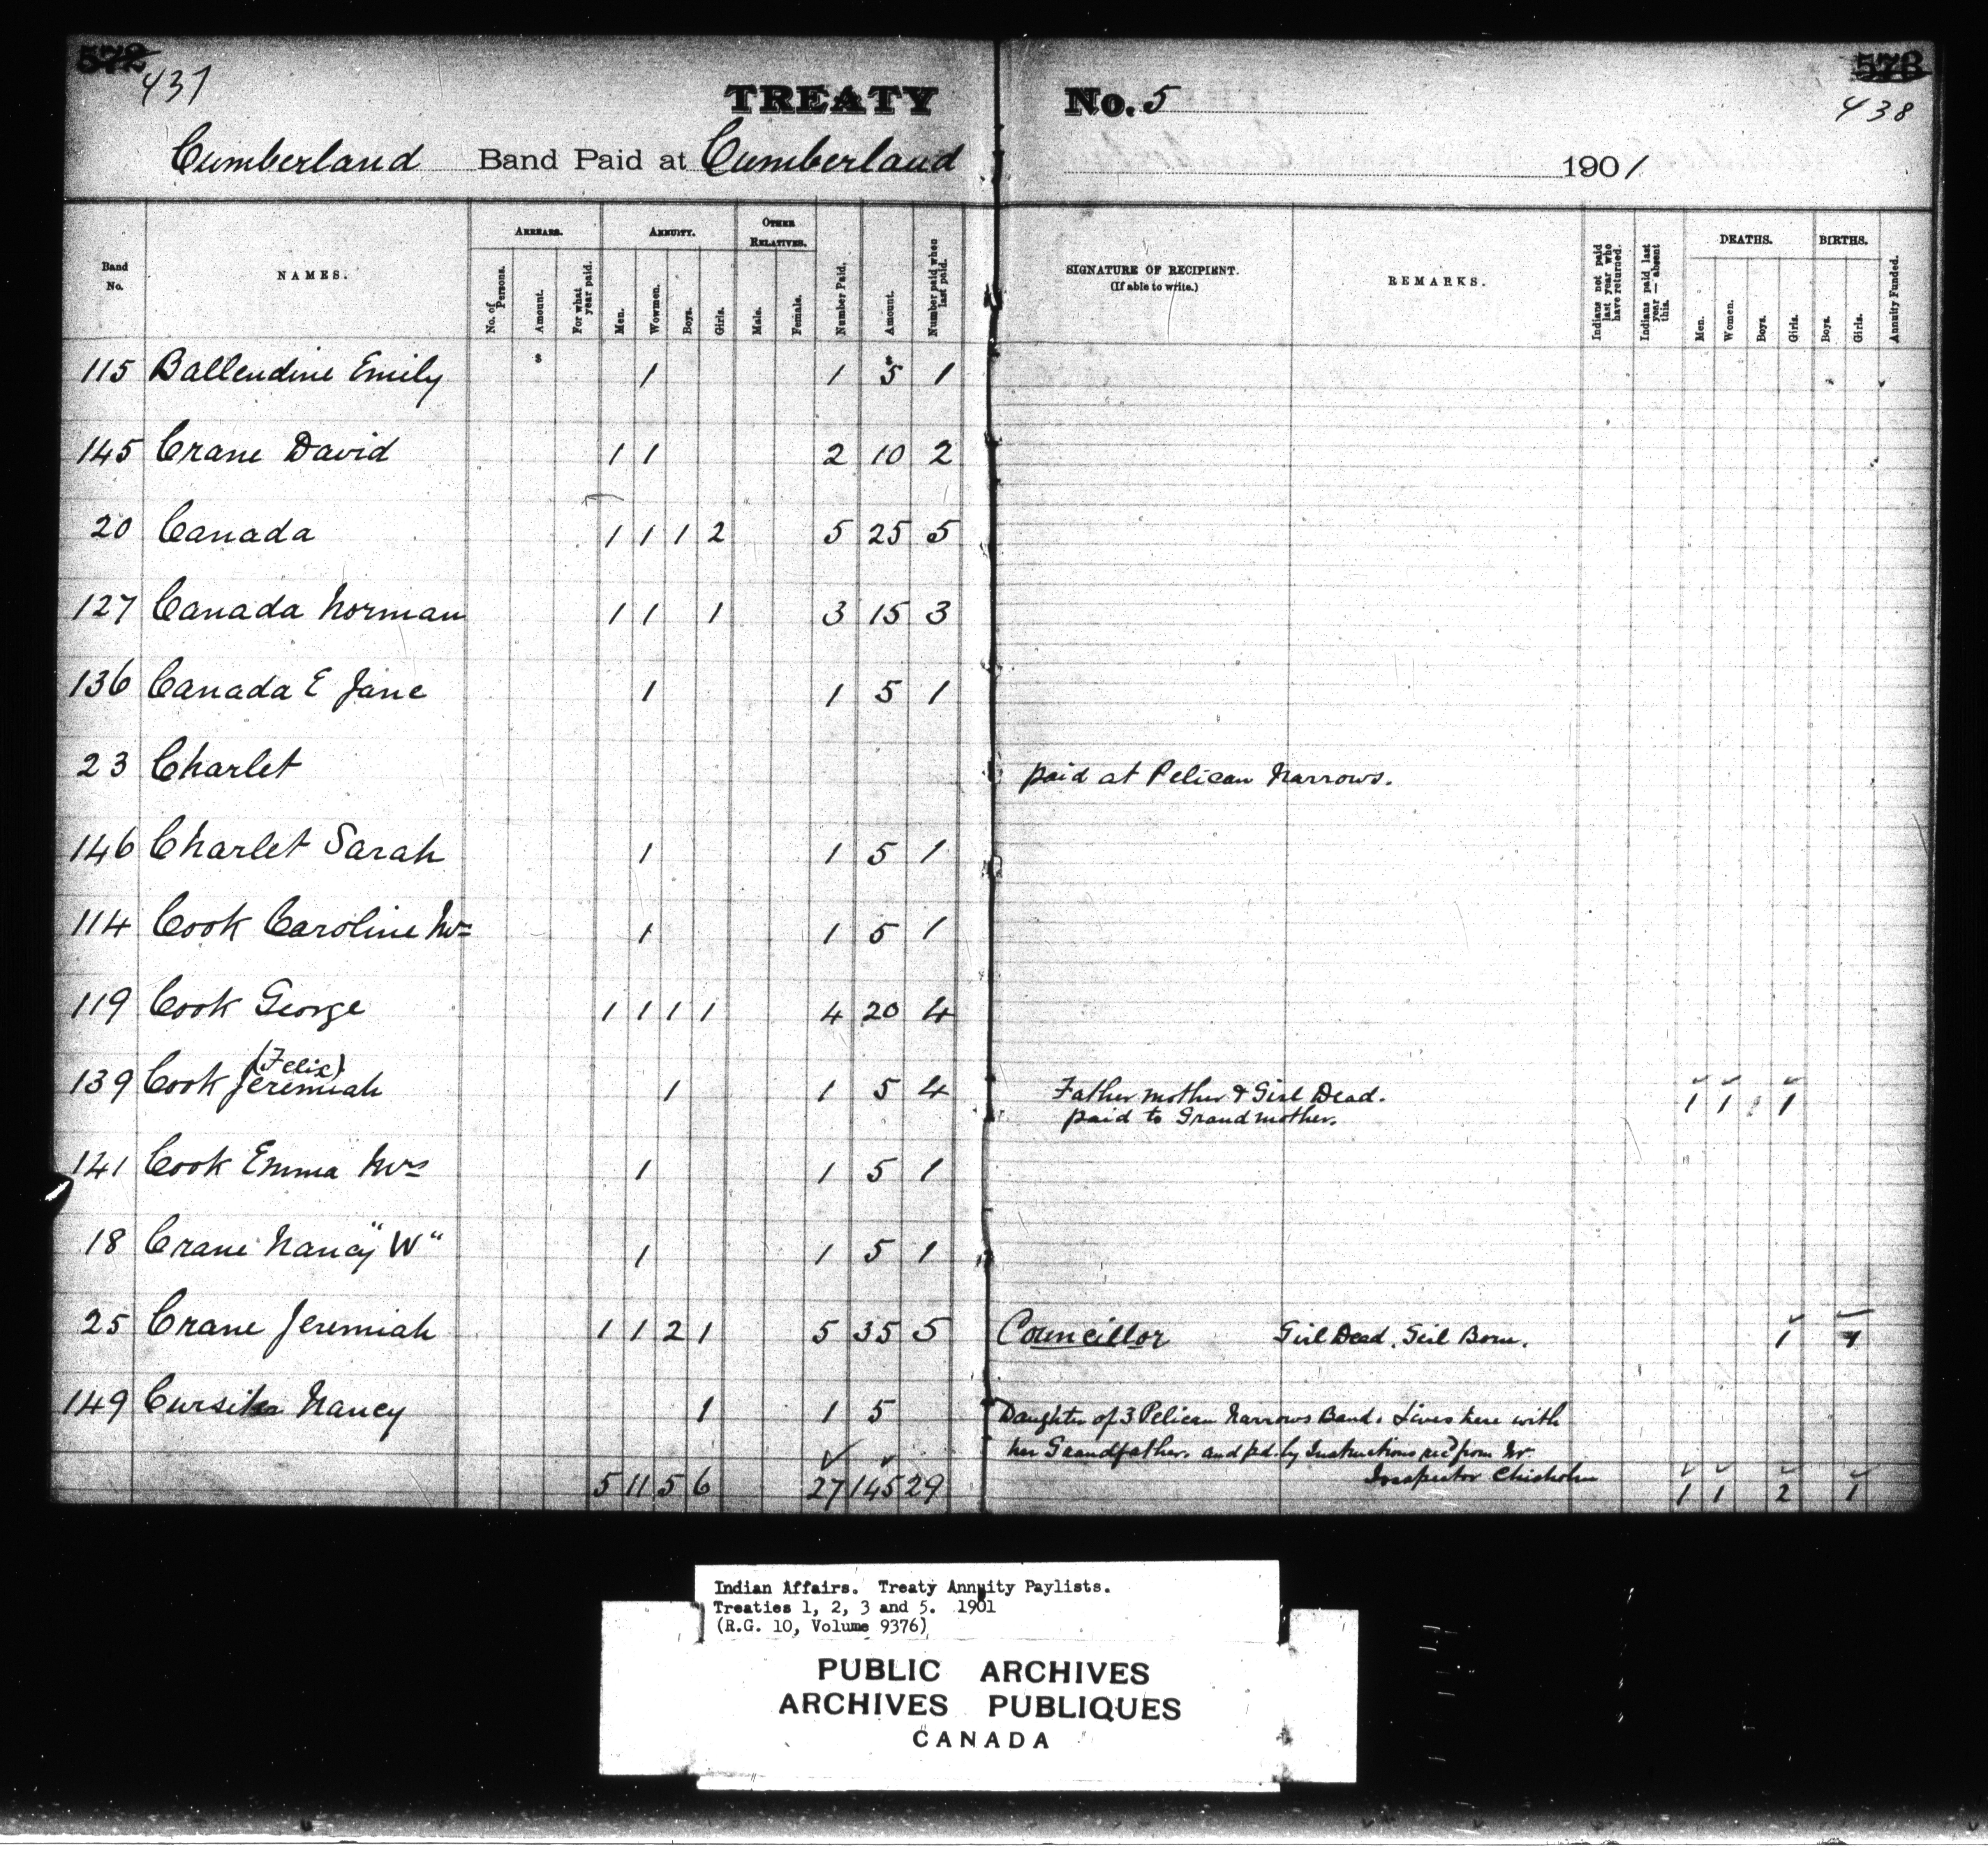 572 573
437 438
TREATY No. 5
Cumberland Band Paid at Cumberland 1901
Band No. NAMES. ARREARS. No. of Persons. Amount. For what year paid. ANNUITY. Men. Wowmen. Boys. Girls. OTHER RELATIVES. Male. Female. Number Paid. Amount. Number paid when last paid. SIGNATURE OF RECIPIENT. (If able to write.) REMARKS. Indians not paid last year who have returned. Indians paid last year — absent this. DEATHS. Men. Women. Boys. Girls. BIRTHS. Boys. Girls. Annuity Funded.
115 Ballendine Emily $ 1 1 $ 5 1
145 Crane David 1 1 2 10 2
20 Canada 1 1 1 2 5 25 5
127 Canada Norman 1 1 1 3 15 3
136 Canada E Jane 1 1 5 1
23 Charlet paid at Pelican Narrows.
146 Charlet Sarah 1 1 5 1
114 Cook Caroline Mrs 1 1 5 1
119 Cook George 1 1 1 1 4 20 4
(Felix)
139 Cook Jeremiah 1 1 5 4 Father mother & Girl Dead. 1 1 1
paid to Grandmother.
141 Cook Emma Mrs 1 1 5 1
18 Crane Nancy "W" 1 1 5 1
25 Crane Jeremiah 1 1 2 1 5 35 5 Councillor Girl Dead. Girl Born. 1 1
149 Nancy 1 1 5 Daughter of 3 Pelican Narrows Band. Lives here with
her Grandfather. and pd. by Instructions recd from Mr.
Inspector Chisholm
5 11 5 6 27 145 29 1 1 2 1
Indian Affairs. Treaty Annuity Paylists.
Treaties 1, 2, 3 and 5. 1901
(R.G. 10, Volume 9376)
PUBLIC ARCHIVES
ARCHIVES PUBLIQUES
CANADA